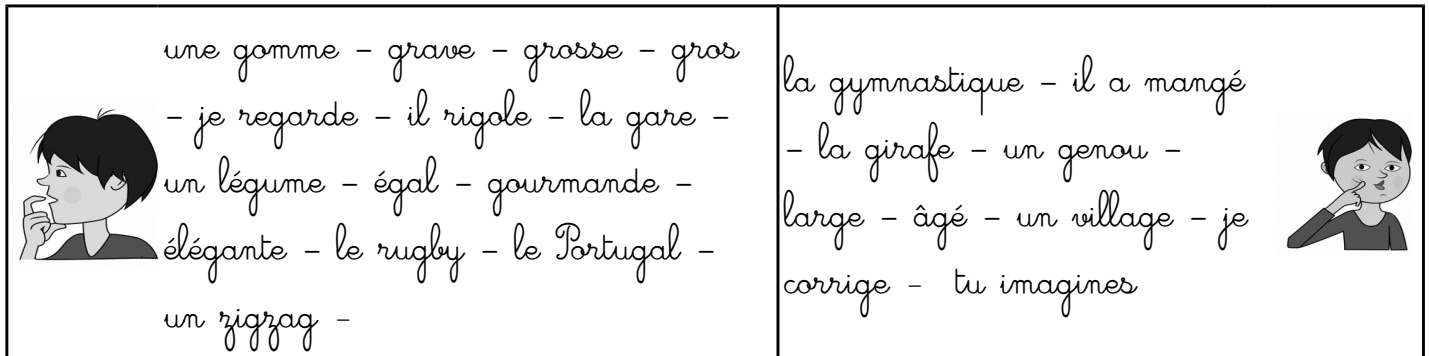 une gomme – grave – grosse – gros
– je regarde – il rigole – la gare –
un légume – égal – gourmande –
élégante – le rugby – le Portugal –
un zigzag –
la gymnastique – il a mangé
– la girafe – un genou –
large – âgé – un village – je
corrige – tu imagines